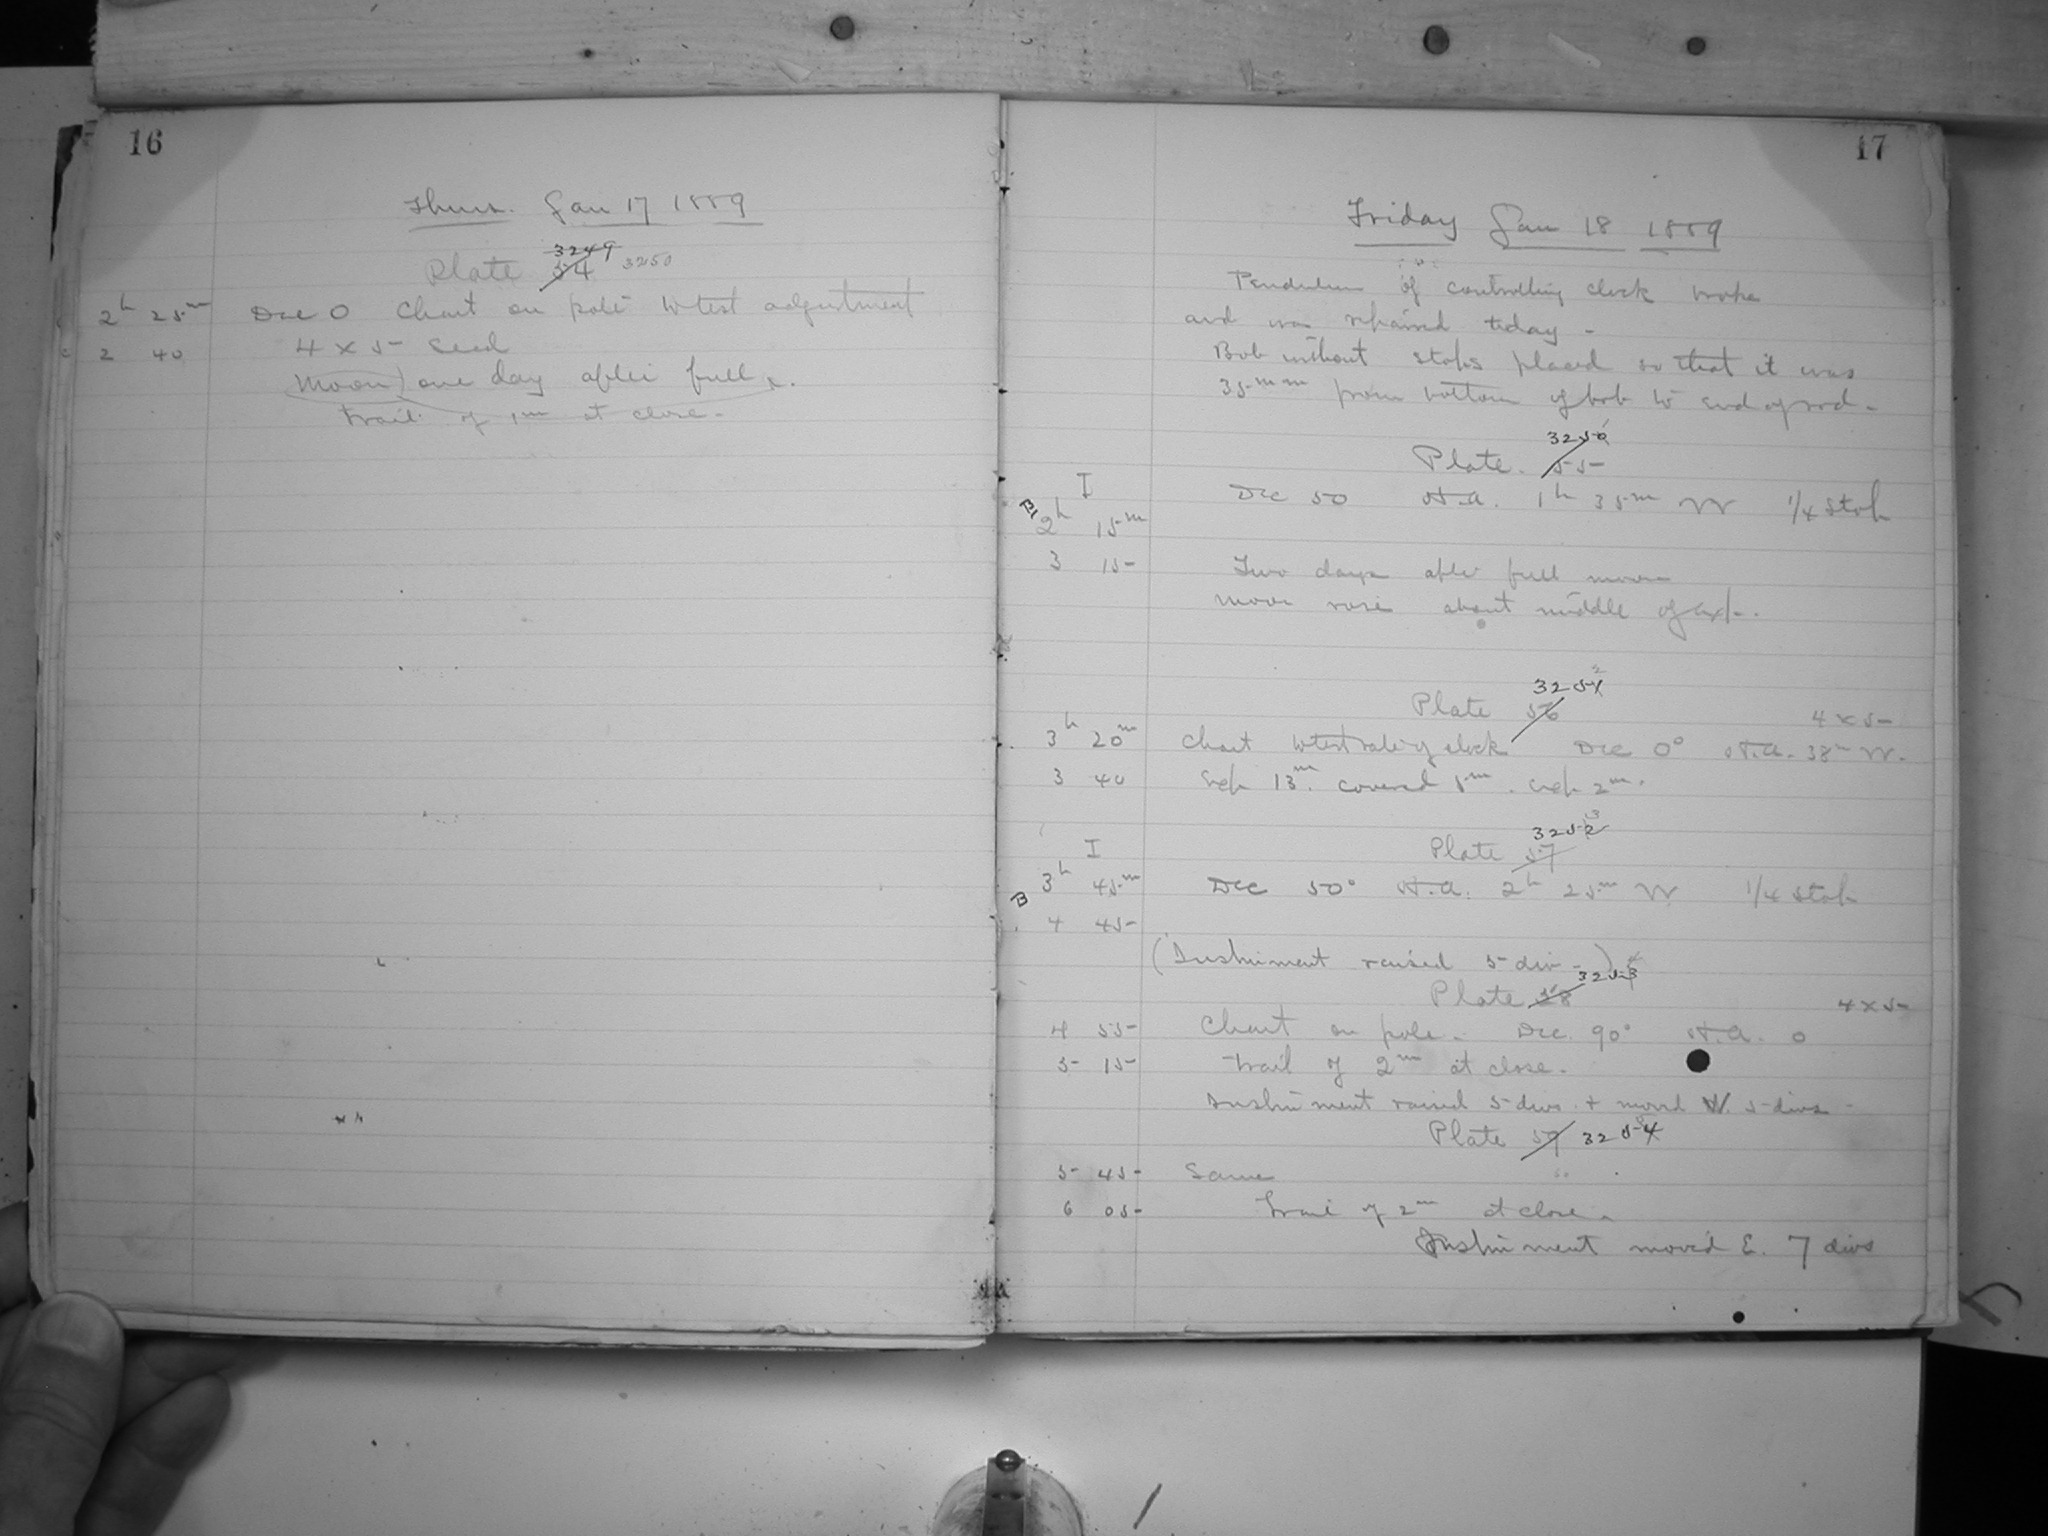 16
Thurs. Jan 17 1889
3249
Plate 54 3250
2h 25m Dec 0 Chart on pole to test adjustment
2 40 4 x 5 Seed
Moon one day after full.
trail of 1m at close.
17
Friday Jan 18 1889
Pendulum of controlling clock broke
and was repaired today -
Bob without stops placed so that it was
35mm from bottom of bob to end of rod.
3250
Plate. 55
I Dec 50 H.A. 1h 35m W 1/4 stop
B 2h 15m
3 15 Two days after full moon
moon rose about middle of exp.
3251 2
Plate 56 4 x 5
3h 20m Chart to test rate of clock Dec 0° H.A. 38m W.
3 40 exp 13m. covered 5m. exp 2m.
3252 3
I Plate 57
3h 45m Dec 50° H.A. 2h 25m W 1/4 stop
B
4 45
(Instrument raised 5 div.)
3253 4
Plate 58 4 x 5
4 55 Chart on pole. Dec. 90° H.A. 0
5 15 trail of 2m at close.
Instrument raised 5 divs. + moved W. 5 divs -
Plate 59 3254
5 45 Same
6 05 trail of 2m at close.
Instrument moved E. 7 divs